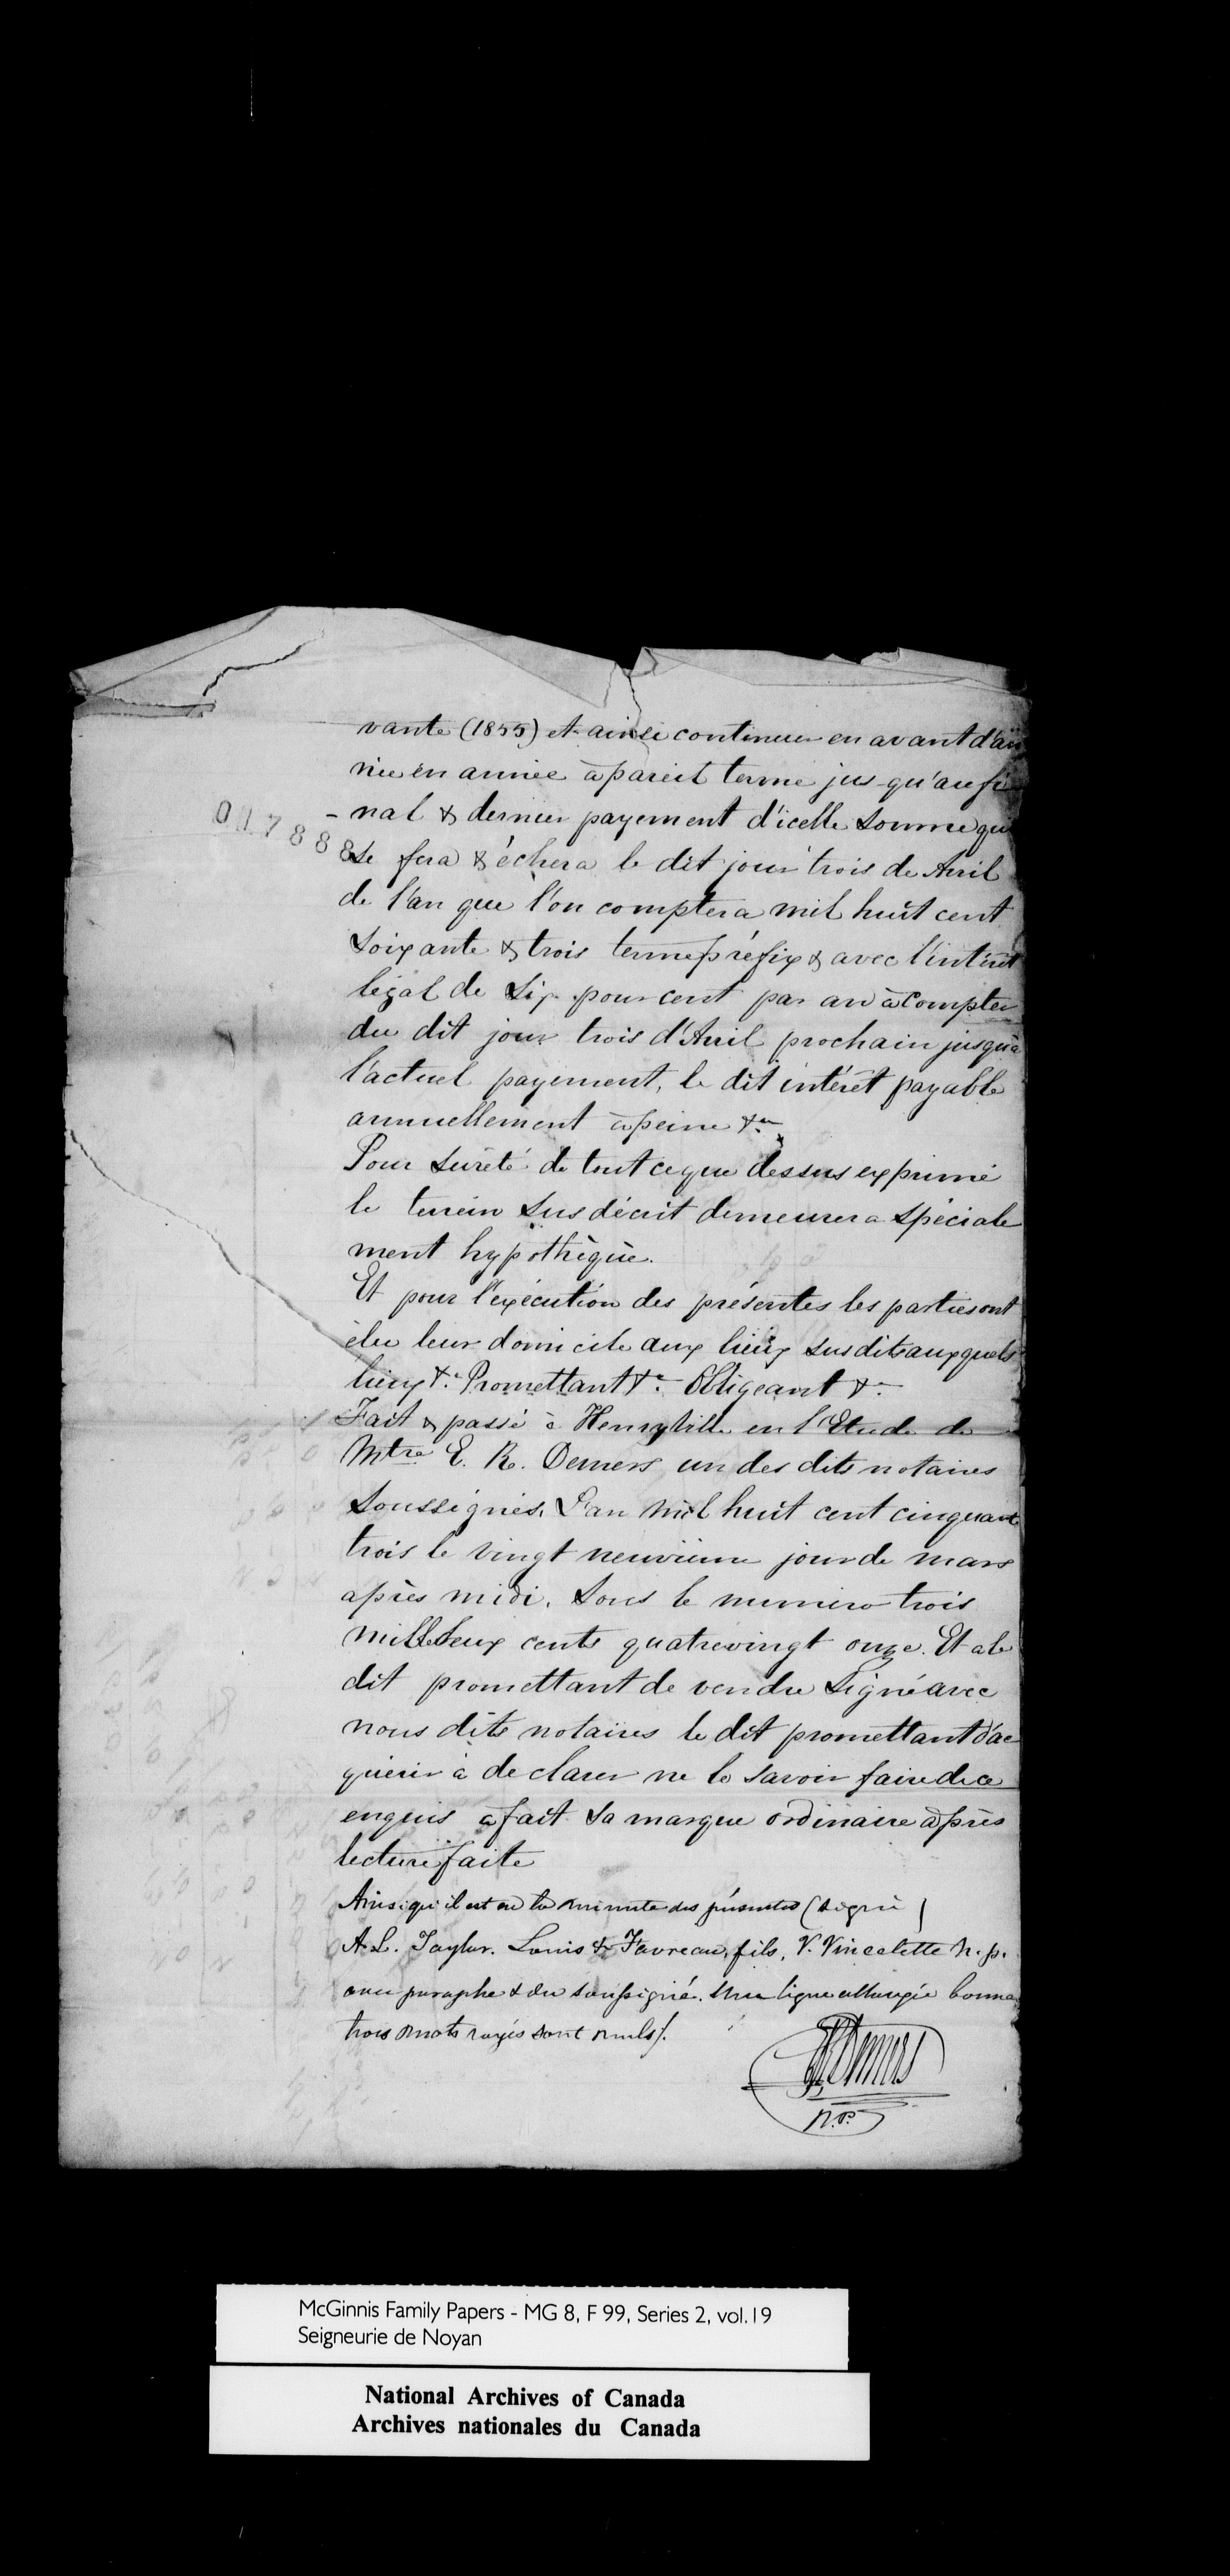 vante (1855) et ainsi continuer en avant d'an
née en année à pareil terme jus-qu'au fi
- nal & dernier payement d'icelle somme qui
017888
se fera & échera le dit jour trois de Avril
de l'an que l'on comptera mil huit cent
soixante & trois terme préfix & avec l'intérêt
légal de six pour cent par an à compter
du dit jour trois d'Avril prochain jusqu'à
l'actuel payement, le dit intérêt payable
annuellement à peine &a
Pour sureté de tout ce que dessus exprimé
le terrein sus décrit demeurera spéciale
ment hypothèqué.
Et pour l'exécution des présentes les parties ont
élu leur domicile aux lieux susdits auxquels
lieux &c Promettant &c Obligeant &c
Fait & passé à Henryville en l'Etude de
Mtre E. R. Demers un des dits notaires
soussignés. L'an mil huit cent cinquante
trois le vingt neuvième jour de mars
après midi. Sous le numéro trois
mille deux cents quatrevingt onze. Et a le
dit promettant de vendre signé avec
nous dits notaires le dit promettant d'ac
quérir à declarer ne le savoir faire de ce
enquis a fait sa marque ordinaire après
lecture faite
Ainsi qu'il est en la minute des présentes (signé)
A. L. Taylor. Louis Favreau, fils, V. Vincelette N. p.
avec paraphe & du soussigné. Une ligne allongée bonne
trois mots rayés sont nuls/.
ERDemers
N.P.
McGinnis Family Papers - MG 8, F 99, Series 2, vol.19
Seigneurie de Noyan
National Archives of Canada
Archives nationales du Canada